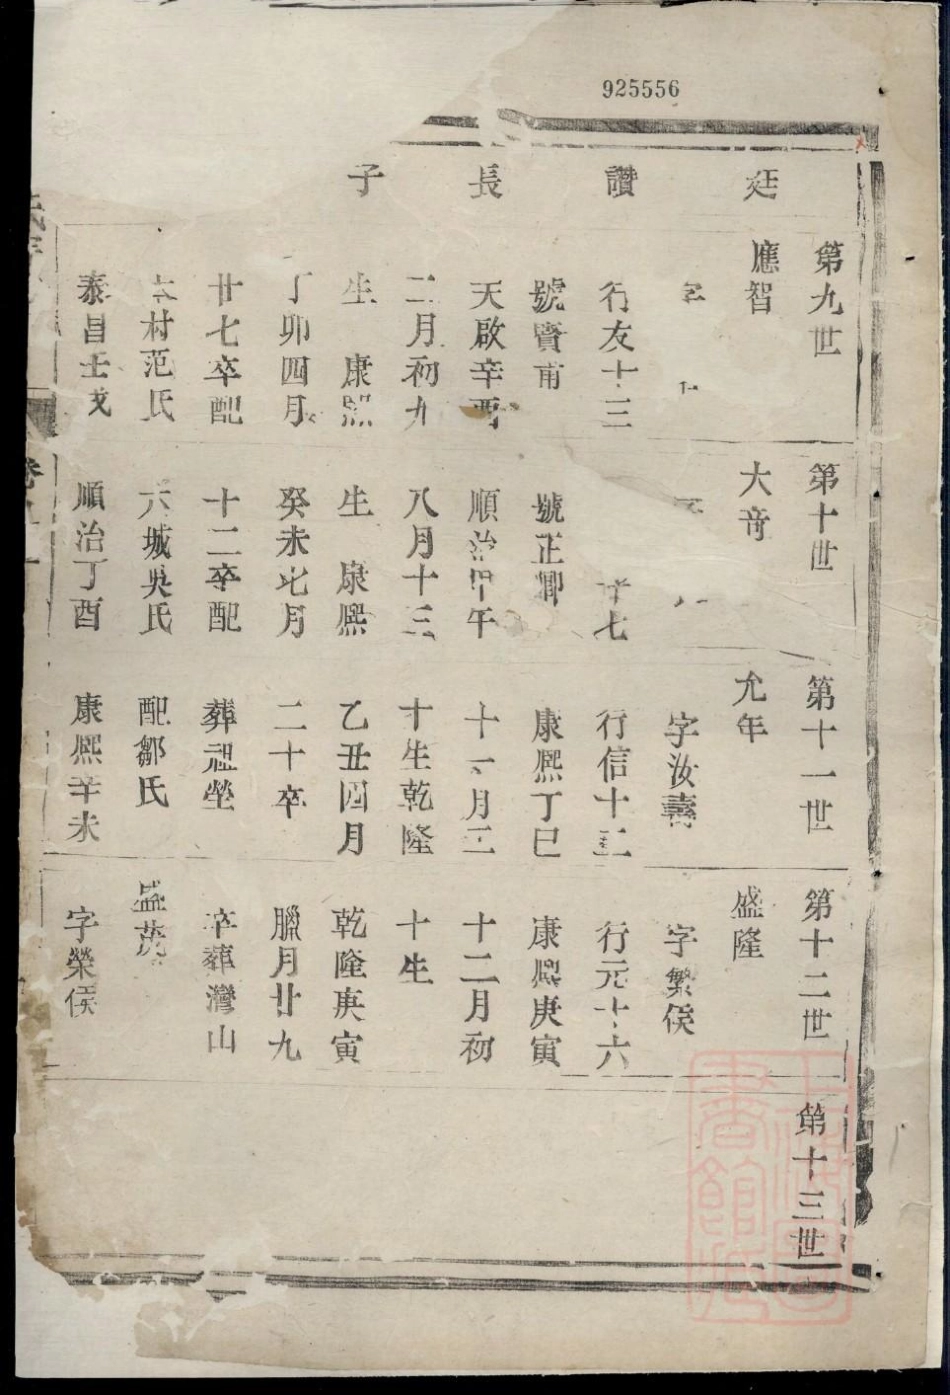 925556
廷讚長子
第九世
應智
字
行友十三
號賓甫
天啟辛酉
二月初九
生 康熙
丁卯四月
廿七卒配
村范氏
泰昌壬戌
第十世
大奇
十七
號正卿
順治甲午
八月十三
生 康熙
癸未七月
十二卒配
六城吳氏
順治丁酉
第十一世
允年
字汝壽
行信十三
康熙丁巳
十一月三
十生乾隆
乙丑四月
二十卒
葬祖塋
配鄒氏
康熙辛未
第十二世
盛隆
字繁侯
行元十六
康熙庚寅
十二月初
十生
乾隆庚寅
臘月廿九
卒葬灣山
盛茂
字榮侯
第十三世
上海圖書館藏